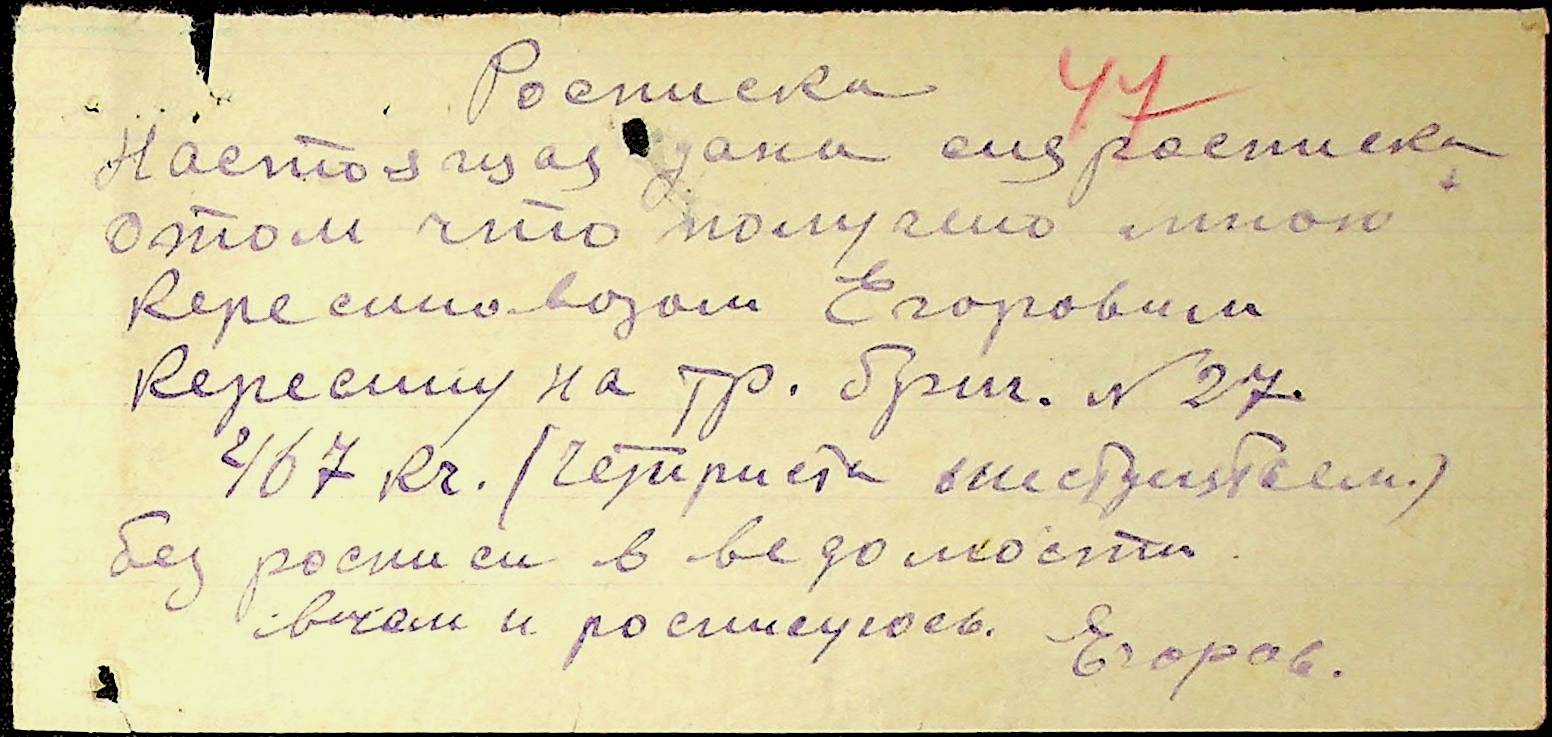 Росписка 47
Настоящая дана сия росписка
о том что получено мною
Кересиновозом Егоровым
Кересину на тр. бриг. N 27.
467 кг. (Четириста шестдецятьсем.)
без росписи в ведомости
вчем и росписуюсь. Егоров.